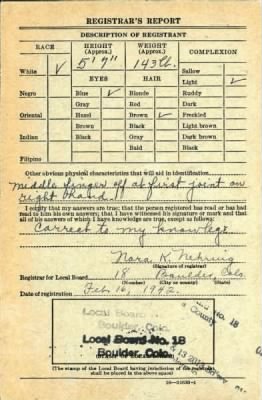 REGISTRAR'S REPORT
DESCRIPTION OF REGISTRANT
RACE HEIGHT (Approx.) WEIGHT (Approx.) COMPLEXION
5' 9" 143 lb.
White ✓ Sallow
EYES HAIR Light ✓
Negro Blue ✓ Blonde Ruddy
Gray Red Dark
Oriental Hazel Brown ✓ Freckled
Brown Black Light brown
Indian Black Gray Dark brown
Bald Black
Filipino
Other obvious physical characteristics that will aid in identification
middle finger off at first joint on
right hand
I certify that my answers are true; that the person registered has read or has had
read to him his own answers; that I have witnessed his signature or mark and that
all of his answers of which I have knowledge are true, except as follows:
Correct to my knowledge
Nora K. Nehring
(Signature of registrar)
Registrar for Local Board 18 Boulder, Colo.
(Number) (City or county) (State)
Date of registration Feb. 16, 1942
Local Board No. 18
County
Boulder, Colo.
Local Board No. 18
Boulder, Colo.
(The stamp of the Local Board having jurisdiction of the registrant
shall be placed in the above space)